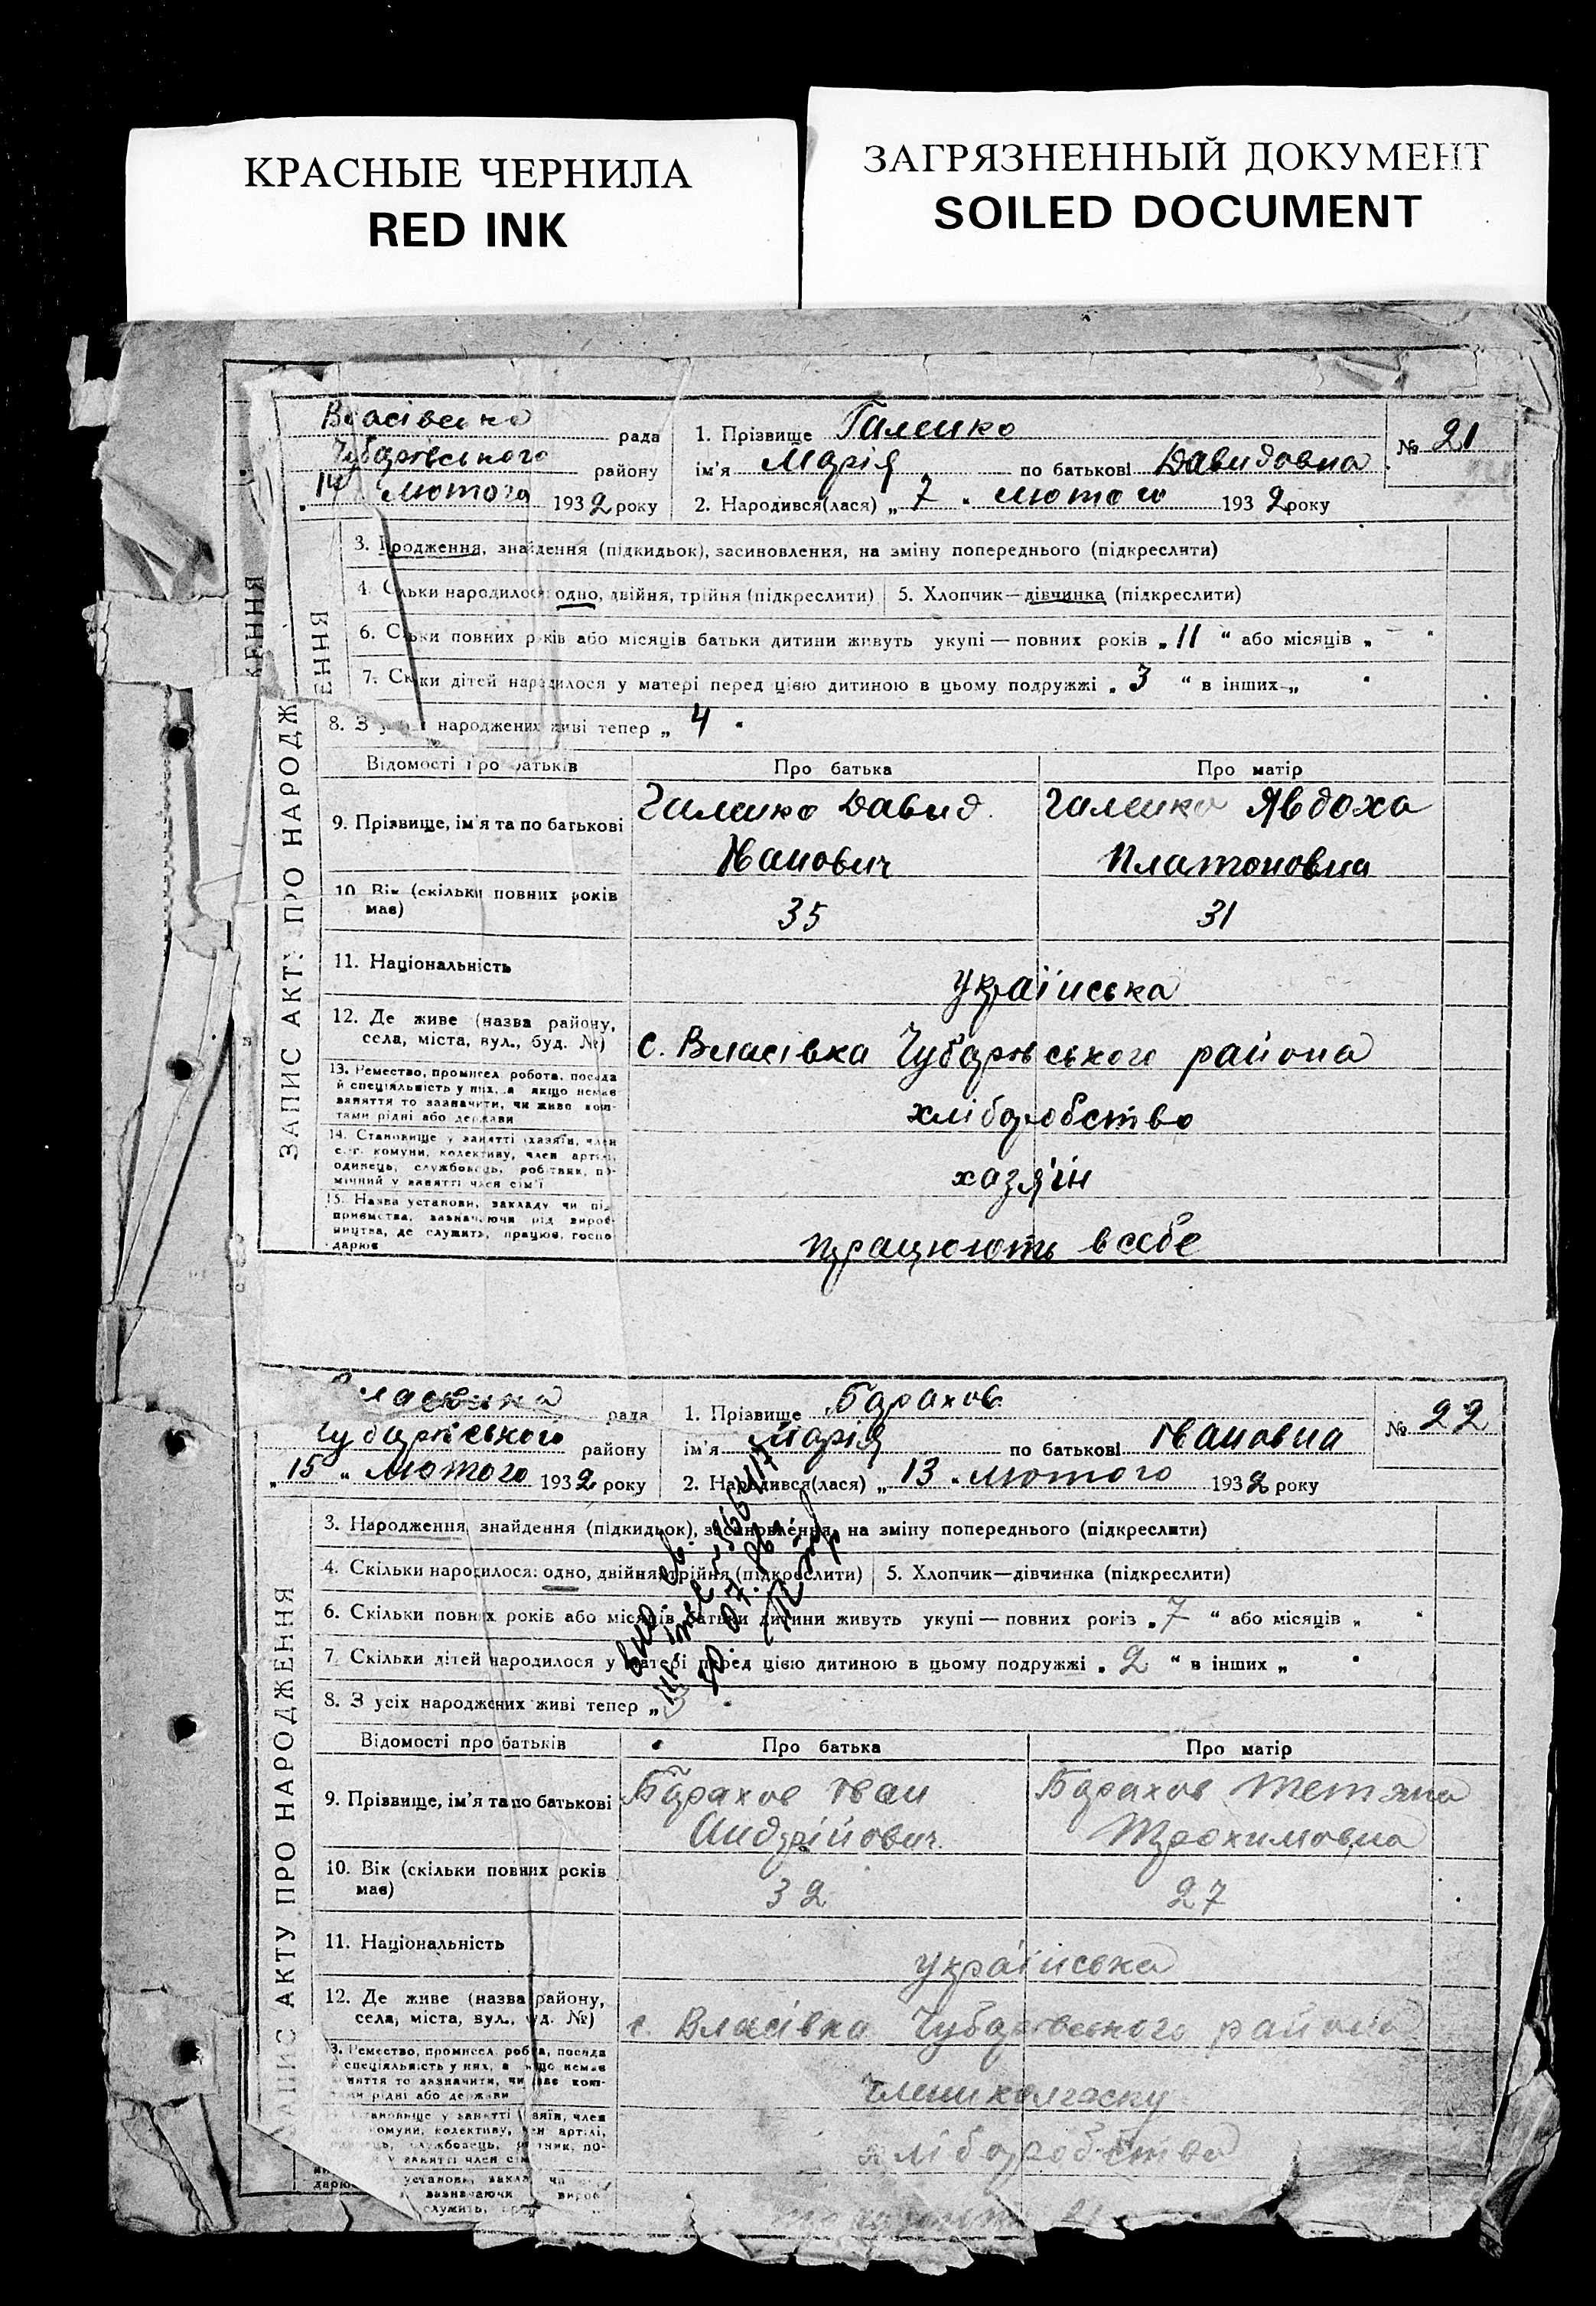 КРАСНЫЕ ЧЕРНИЛА
RED INK
ЗАГРЯЗНЕННЫЙ ДОКУМЕНТ
SOILED DOCUMENT
Власівська рада
Чубарівського району
14 лютого 1932 року
1. Прізвище Галенко
ім'я Марія по батькові Давидовна
2. Народився(лася) „ 7 " лютого 1932 року
№ 21
3. Народження, знайдення (підкидьок), засиновлення, на зміну попереднього (підкреслити)
4. Скільки народилося: одно, двійня, трійня (підкреслити) 5. Хлопчик—дівчинка (підкреслити)
6. Скільки повних років або місяців батьки дитини живуть укупі — повних років „ 11 " або місяців „ "
7. Скільки дітей народилося у матері перед цією дитиною в цьому подружжі „ 3 " в інших „ "
8. З усіх народжених живі тепер „ 4 "
Відомості про батьків Про батька Про матір
9. Прізвище, ім'я та по батькові
Галенко Давид Галенко Явдоха
Іванович Платоновна
10. Вік (скільки повних років має) 35 31
11. Національність українська
12. Де живе (назва району, села, міста, вул., буд. №) с. Власівка Чубарівського района
13. Ремество, промисел, робота, посада й спеціяльність у них, а якщо немає заняття то зазначити, чи живе коштами рідні або держави
хліборобство
14. Становище у занятті (хазяїн, член с.-г. комуни, колективу, член артілі, одинець, службовець, робітник, помічний у занятті член сім'ї
хазяїн
15. Назва установи, закладу чи підприємства, зазначаючи рід виробництва, де служить, працює, господарює
працюють в себе
ЗАПИС АКТУ ПРО НАРОДЖЕННЯ
рада
Чубарівського району
„ 15 " лютого 1932 року
1. Прізвище Барахов
ім'я Марія по батькові Івановна
2. Народився(лася) „ 13 " лютого 1932 року
№ 22
3. Народження, знайдення (підкидьок), засиновлення, на зміну попереднього (підкреслити)
4. Скільки народилося: одно, двійня, трійня (підкреслити) 5. Хлопчик—дівчинка (підкреслити)
6. Скільки повних років або місяців батьки дитини живуть укупі — повних років „ 7 " або місяців „ "
7. Скільки дітей народилося у матері перед цією дитиною в цьому подружжі „ 2 " в інших „ "
8. З усіх народжених живі тепер „ 3
Відомості про батьків Про батька Про матір
9. Прізвище, ім'я та по батькові
Барахов Іван Барахов Тетяна
Андрійович Трохимовна
10. Вік (скільки повних років має) 32 27
11. Національність українська
12. Де живе (назва району, села, міста, вул., буд. №) с. Власівка Чубарівського района
13. Ремество, промисел, робота, посада й спеціяльність у них, а якщо немає заняття то зазначити, чи живе коштами рідні або держави
члени колгоспу
хліборобство
ЗАПИС АКТУ ПРО НАРОДЖЕННЯ